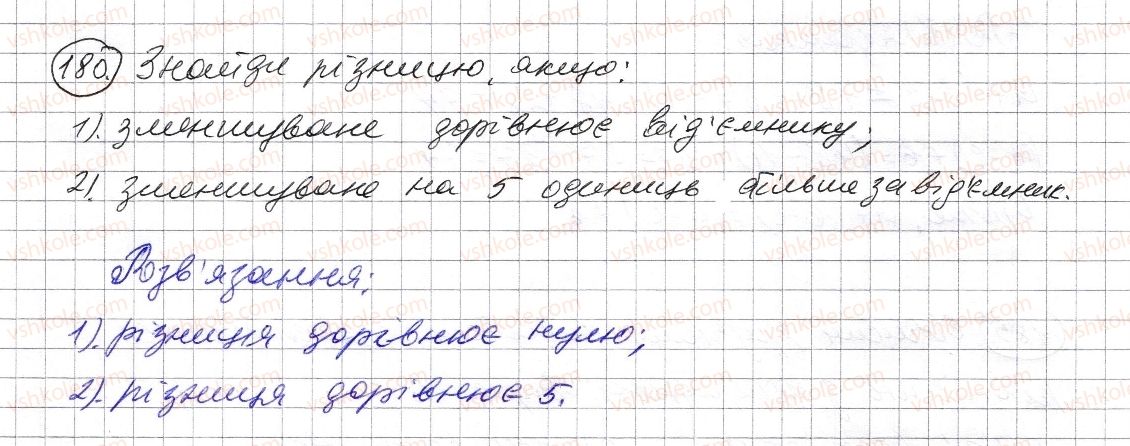 180. Знайди різницю, якщо:
1). зменшуване дорівнює від'ємнику;
2). зменшуване на 5 одиниць більше за від'ємник.
Розв'язання:
1). різниця дорівнює нулю;
2). різниця дорівнює 5.